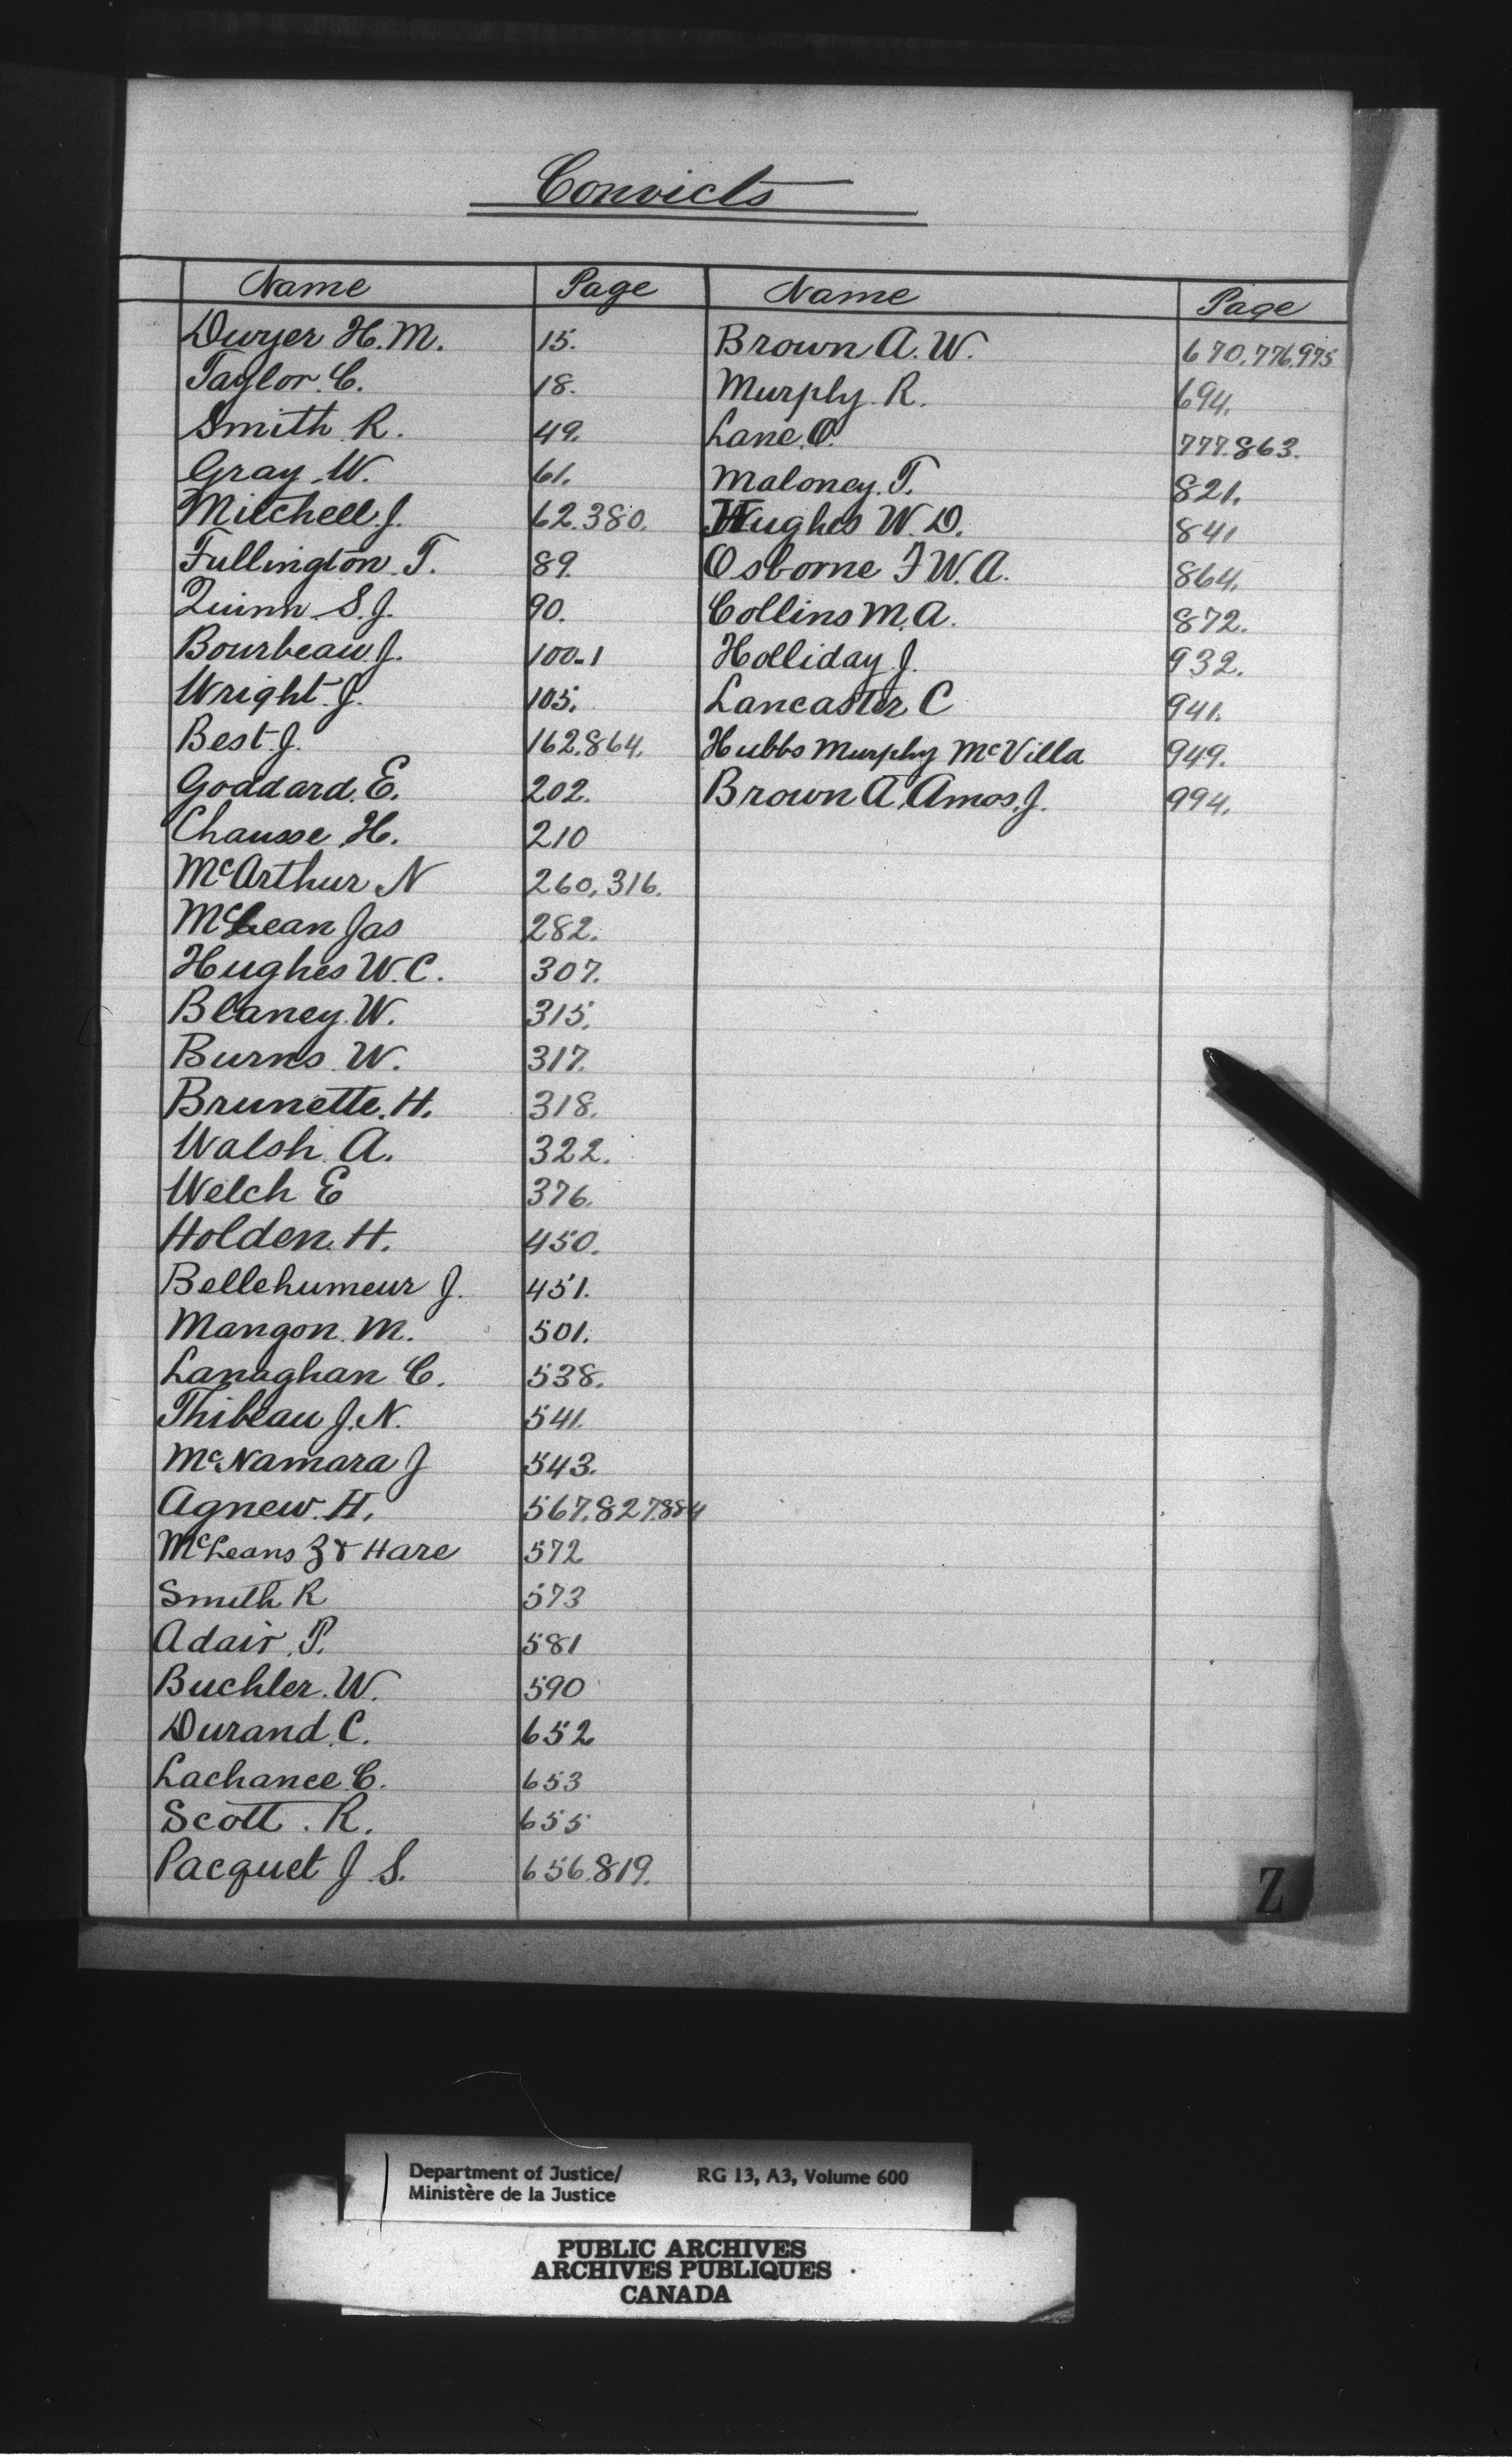 Convicts
Name Page
Dwyer H. M. 15.
Taylor. C. 18.
Smith R. 49.
Gray. W. 61.
Mitchell. J. 62.380.
Fullington. T. 89.
Quinn. S. J. 90.
Bourbeau. J. 100-1
Wright. J. 105.
Best. J. 162.864.
Goddard. E. 202.
Chausse H. 210
McArthur N 260, 316.
McLean Jas 282.
Hughes W. C. 307.
Blaney. W. 315.
Burns W. 317.
Brunette. H. 318.
Walsh A. 322.
Welch E 376.
Holden. H. 450.
Bellehumeur J. 451.
Mangon. M. 501.
Lanaghan C. 538.
Thibeau J. N. 541.
McNamara J 543.
Agnew. H. 567.827.884
McLeans 3 & Hare 572
Smith R 573
Adair. P. 581
Buchler. W. 590
Durand. C. 652
Lachance C. 653
Scott. R. 655
Pacquet J. S. 656.819.
Name Page
Brown A. W. 670.776.975
Murphy. R. 694.
Lane. O. 777.863.
Maloney. T. 821.
Hughes W. D. 841
Osborne F W. A. 864.
Collins M. A. 872.
Holliday. J. 932.
Lancaster C 941.
Hubbs Murphy McVilla 949.
Brown A, Amos. J. 994.
Z
Department of Justice/ RG 13, A3, Volume 600
Ministère de la Justice
PUBLIC ARCHIVES
ARCHIVES PUBLIQUES
CANADA